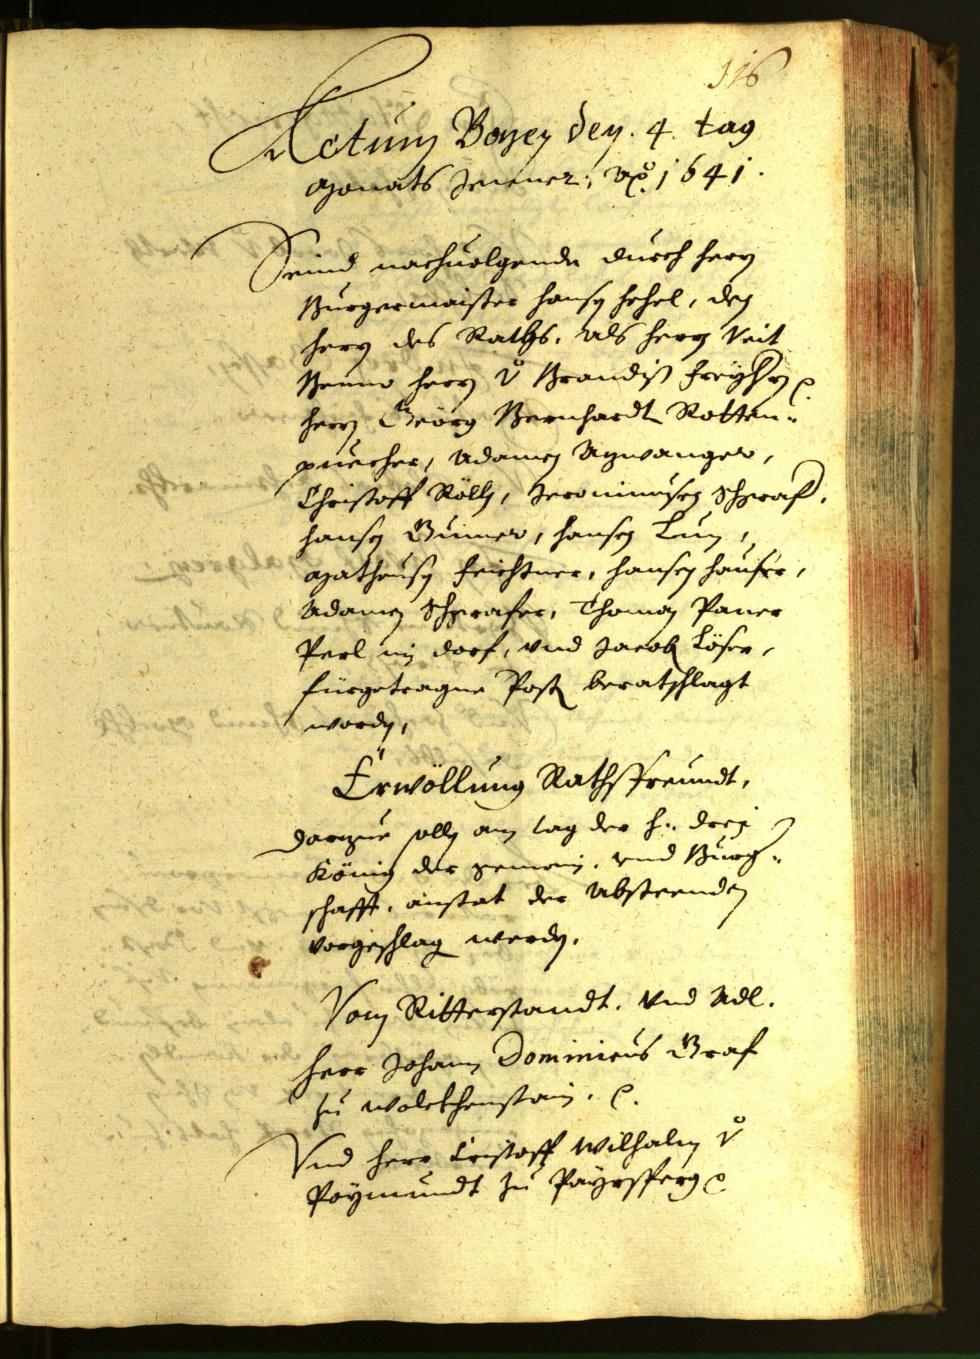 116
Actum Bozen den. 4. tag
Monats Jenener, Aõ. 1641.
Seind nachuolgende durch herrn
Burgermaister Hansen Hehel, den
herrn des Raths, als herrn Veit
Benno herrn v Brandiß Freyhrn p.
herrn Georg Bernhardt Rotten-
puecher, Adamen Anwanger,
Christoff Röll, Jeronimusen Schgraf,
Hansen Gumer, Hansen Lun,
Matheusen Feichtner, Hansen Hauser,
Adamen Schgrafer, Thoman Paner
Perl im dorf, vnd Jacob Löser,
fürgetragne Post beratschlagt
worden,
Erwöllung Rathsfreundt,
Darzue solln am tag der h: drey
König der gemain. vnd Burg-
schafft. anstat der Absteenden
vorgeschlag werden.
Vom Ritterstandt. vnd Adl.
Herr Johann Dominicus Graf
zu Wolckhenstain. p.
Vnd herr Cristoff Wilhalm v
Poymundt zu Payrsperg p